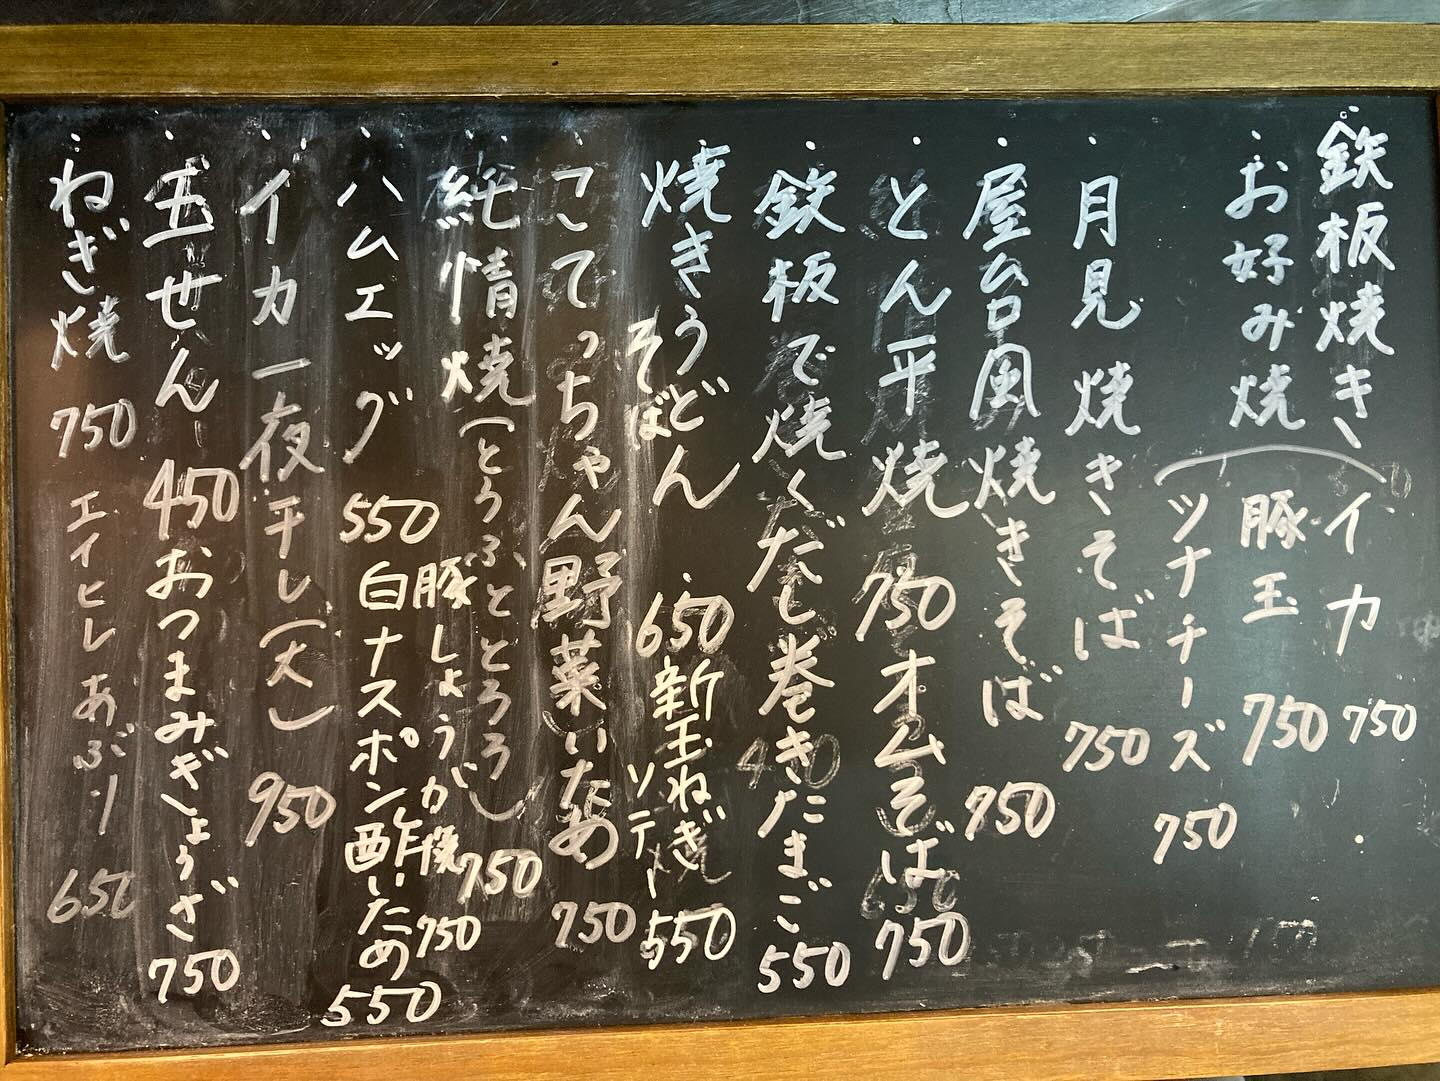 鉄板焼き
・お好み焼
イカ 750
豚玉 750
ツナチーズ 750
・月見焼きそば 750
・屋台風焼きそば 750
・とん平焼 750
オムそば 750
・鉄板で焼くだし巻きたまご 550
・焼きうどん
そば
650
新玉ねぎ
ソテー 550
・こてっちゃん野菜いため 750
・純情焼(とうふととろろ) 750
豚しょうが焼 750
・ハムエッグ 550
白ナスポン酢いため 550
・イカ一夜干し(大) 950
・玉せん 450
おつまみぎょうざ 750
・ねぎ焼 750
エイヒレあぶり 650